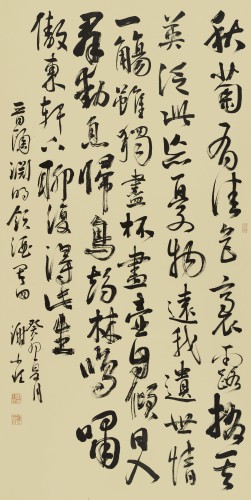 秋菊有佳色裛露掇其
英泛此忘憂物遠我遺世情
一觴雖獨盡杯盡壺自傾日入
羣動息歸鳥趨林鳴嘯
傲東軒下聊復得此生
晉陶淵明飲酒其四
癸卯夏月